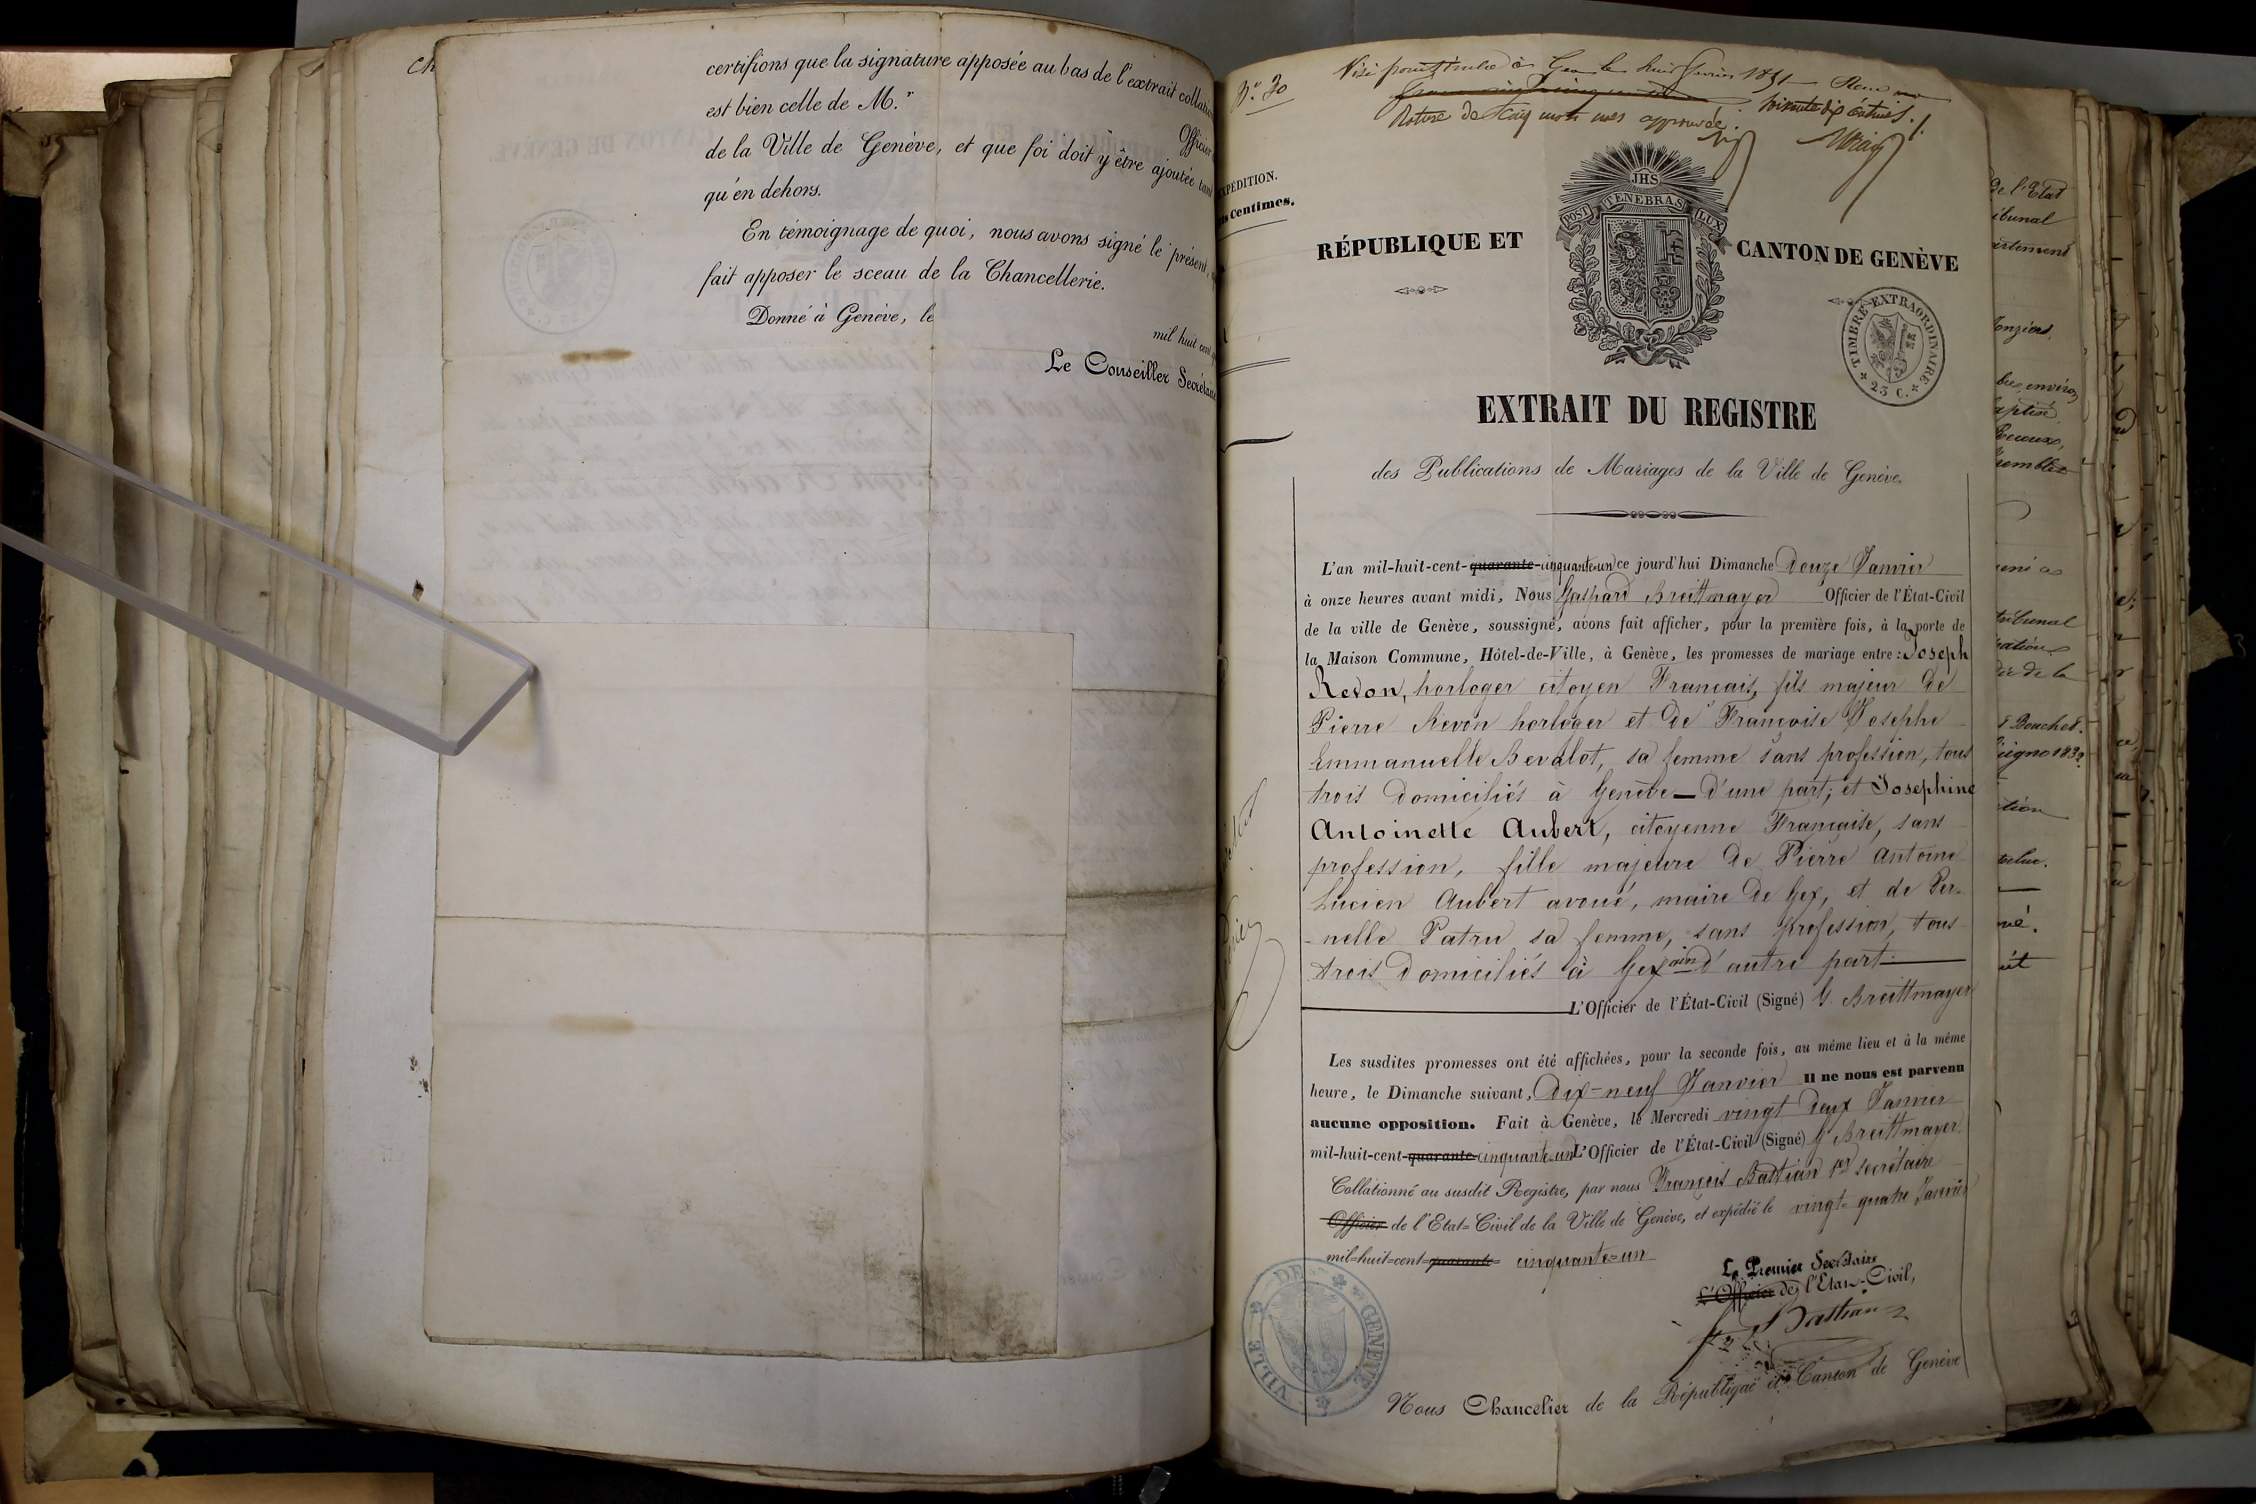 certifions que la signature apposée au bas de l'extrait collation
est bien celle de M.r
Officier
de la Ville de Genève, et que foi doit y être ajoutée tant
qu'en dehors.
En témoignage de quoi, nous avons signé le présent,
fait apposer le sceau de la Chancellerie.
Donné à Genève, le
mil huit cent
Le Conseiller Secrétaire
N.o 30
Visé pour timbre à Gex le huit février 1851
soixante dix centimes.
Rature de cinq mots nuls approuvée.
EXPÉDITION.
Centimes.
JHS
POST TENEBRAS LUX
RÉPUBLIQUE ET CANTON DE GENÈVE
TIMBRE EXTRAORDINAIRE
25 C.
EXTRAIT DU REGISTRE
des Publications de Mariages de la Ville de Genève.
L'an mil-huit-cent-quarante-cinquante-un ce jourd'hui Dimanche Douze Janvier
à onze heures avant midi, Nous Gaspard Breittmayer Officier de l'État-Civil
de la ville de Genève, soussigné, avons fait afficher, pour la première fois, à la porte de
la Maison Commune, Hôtel-de-Ville, à Genève, les promesses de mariage entre: Joseph
Revon, horloger citoyen Français, fils majeur de
Pierre Revon horloger et de Françoise Josephe
Emmanuelle Bevalot, sa femme sans profession, tous
trois domiciliés à Genève — d'une part; et Josephine
Antoinette Aubert, citoyenne Française, sans
profession, fille majeure de Pierre Antoine
Lucien Aubert avoué, maire de Gex, et de Per-
-nelle Patru sa femme, sans profession, tous
trois domiciliés à Gex (ain) d'autre part.
L'Officier de l'État-Civil (Signé) G. Breittmayer
Les susdites promesses ont été affichées, pour la seconde fois, au même lieu et à la même
heure, le Dimanche suivant, Dix-neuf Janvier Il ne nous est parvenu
aucune opposition. Fait à Genève, le Mercredi vingt deux Janvier
mil-huit-cent-quarante-cinquante-un L'Officier de l'État-Civil (Signé) G. Breittmayer
Collationné au susdit Registre, par nous François Bastian 1er secrétaire
Officier de l'Etat-Civil de la Ville de Genève, et expédié le vingt-quatre Janvier
mil-huit-cent-quarante-cinquante-un
Le Premier Secrétaire
L'Officier de l'Etat-Civil,
Bastian
VILLE DE GENEVE
Nous Chancelier de la République et Canton de Genève
de l'Etat
tribunal
environ
tribunal
de la
Bouchet.